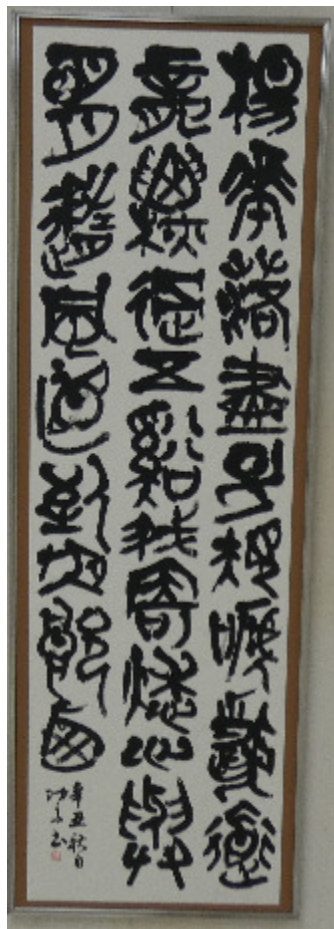 楊華落盡子規啼聞道
龍標過五谿我寄愁心與
明月隨風直到夜郎西
辛丑秋日